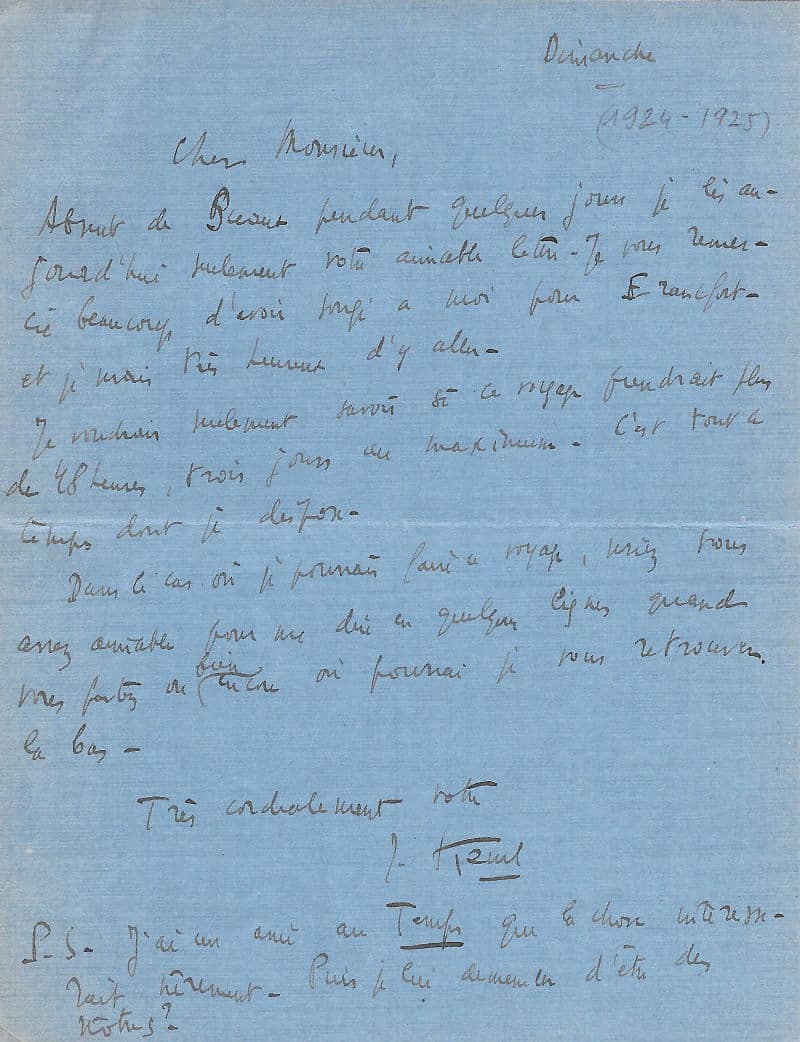 Dimanche
(1924-1925)
Cher Monsieur,
Absent de pendant quelques jours je lis au-
jourd'hui seulement votre aimable lettre - Je vous remer-
cie beaucoup d'avoir songé a moi pour Francfort -
et je serais très heureux d'y aller -
Je voudrais seulement savoir si ce voyage prendrait plus
de 48 heures, trois jours au maximum - C'est tout le
temps dont je dispose -
Dans le cas où je pourrais faire ce voyage, seriez vous
assez aimable pour me dire en quelques lignes quand
vous partez ou bien encore où pourrai je vous retrouver
la bas -
Très cordialement votre
J.
P.S - J'ai un ami au Temps que la chose intéresse-
rait sûrement - Puis je lui demander d'être des
nôtres?